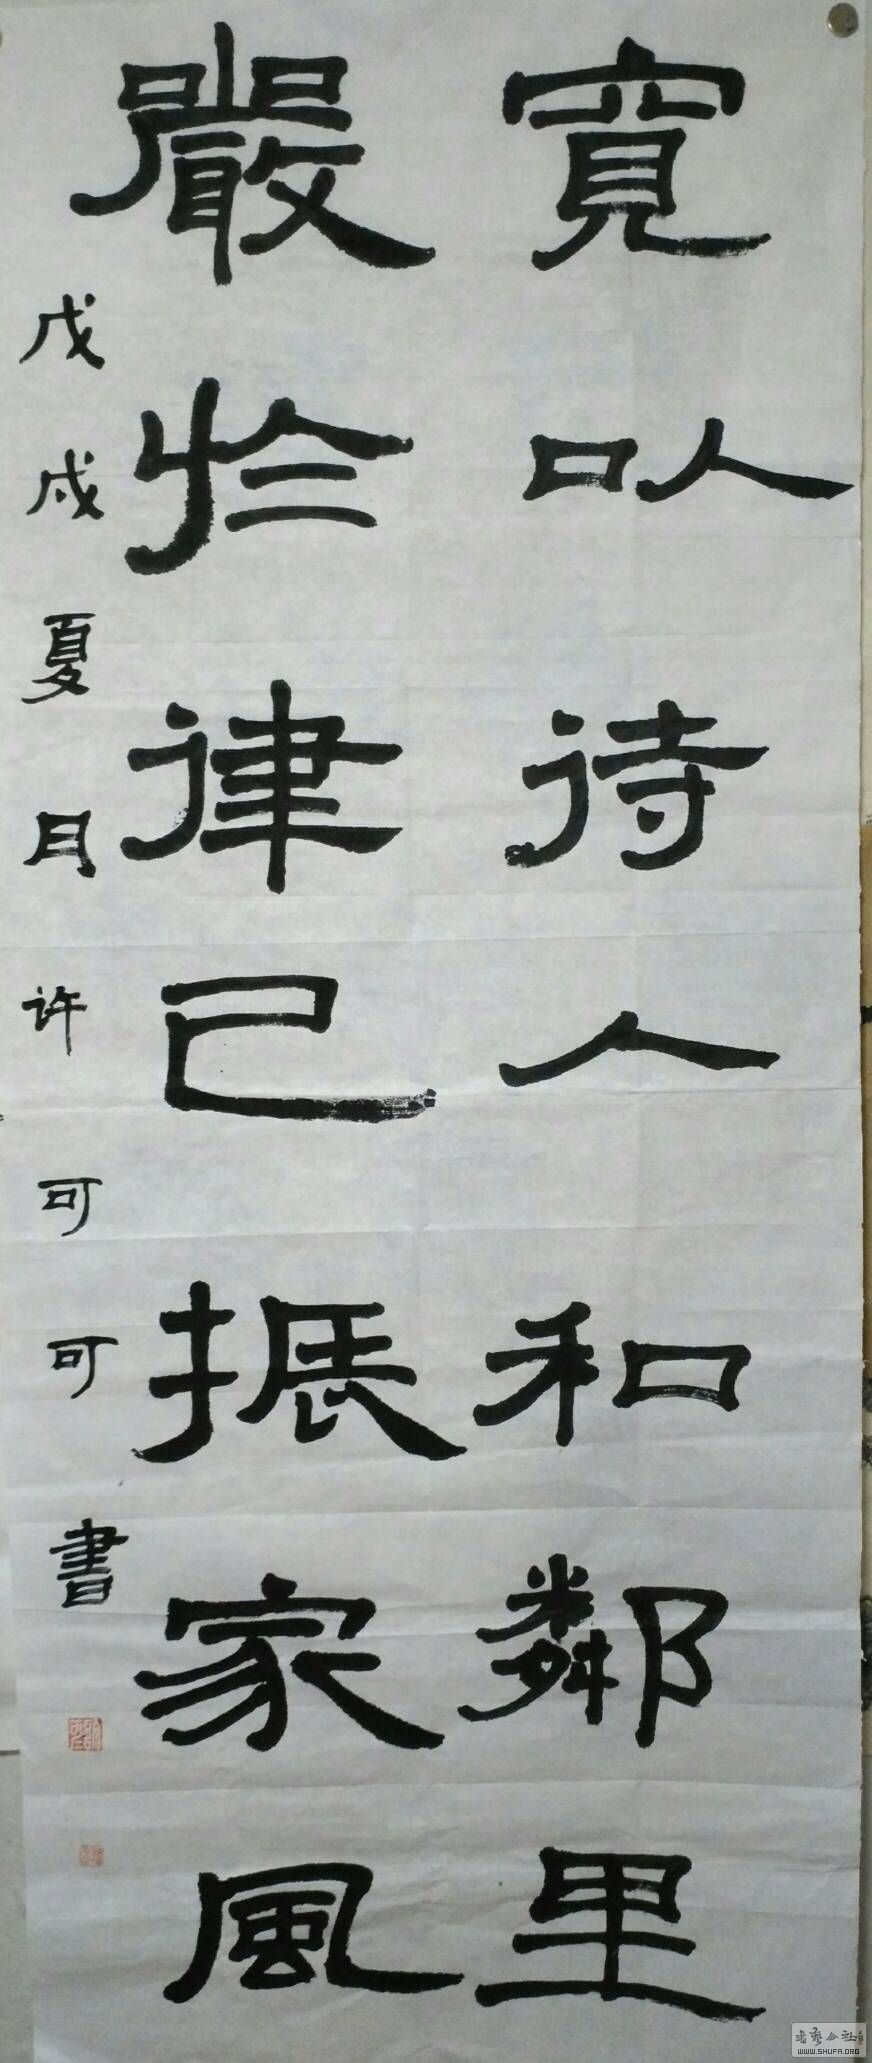 寬以待人和鄰里
嚴於律己振家風
戊戌夏月许可可書
WWW.SHUFA.ORG